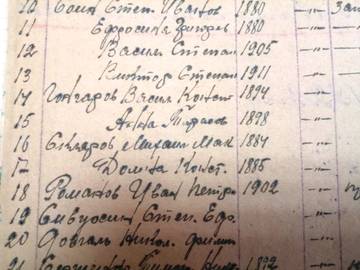 10 Боин Степ. Иванов 1880 —„—
11 Ефросиния Григор 1880 —„—
12 Васил Степан 1905 —„—
13 Виктор Степан 1911 —„—
14 Гончаров Васил Конст 1894 —„—
15 Анна Тарасов 1898 —„—
16 Скляров Михаил Мак 1884 —„—
17 Домна Конст. 1885 —„—
18 Романов Иван Петр 1902 —„—
19 Степ. Еф. —„—
20 Довгаль Никол. Филип —„—
21 1892